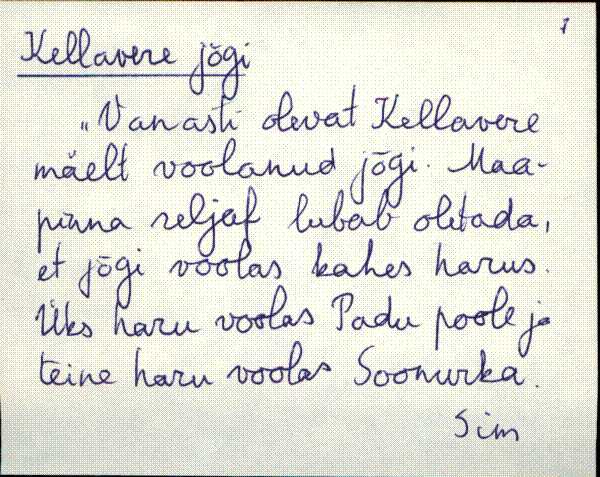 1
Kellavere jõgi
„Vanasti olevat Kellavere
mäelt voolanud jõgi. Maa-
pinna reljef lubab oletada,
et jõgi voolas kahes harus.
Üks haru voolas Padu poole ja
teine haru voolas Soonurka.
Sim